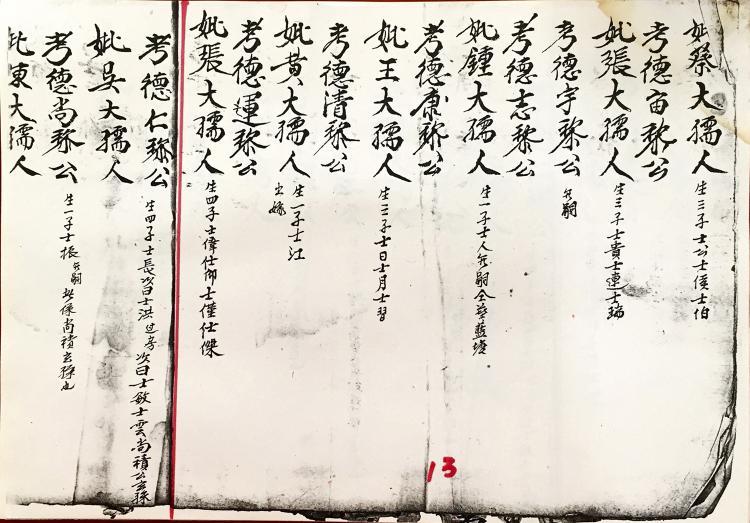 妣蔡大孺人 生三子士公士侯士伯
考德宙黎公
妣張大孺人 生三子士貴士連士瑞
考德宇黎公 無嗣
考德志黎公
妣鍾大孺人 生一子士人無嗣仝葬藍塘
考德康黎公
妣王大孺人 生三子士日士月士習
考德清黎公
妣黄大孺人 生一子士江
出嫁
考德運黎公
妣張大孺人 生四子士偉仕仰士僅仕傑
考德仁黎公 生四子士長次曰士洪過房次曰士敏士雲尚積公玄孫
妣吴大孺人
考德尚黎公 生一子士振無嗣 此係尚積玄孫也
妣東大孺人
13